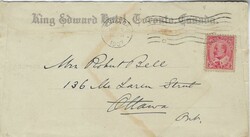 King Edward Hotel, Toronto, Canada.
Mrs Robert Bell
136 Mc Laren Street
Ottawa
Ont.